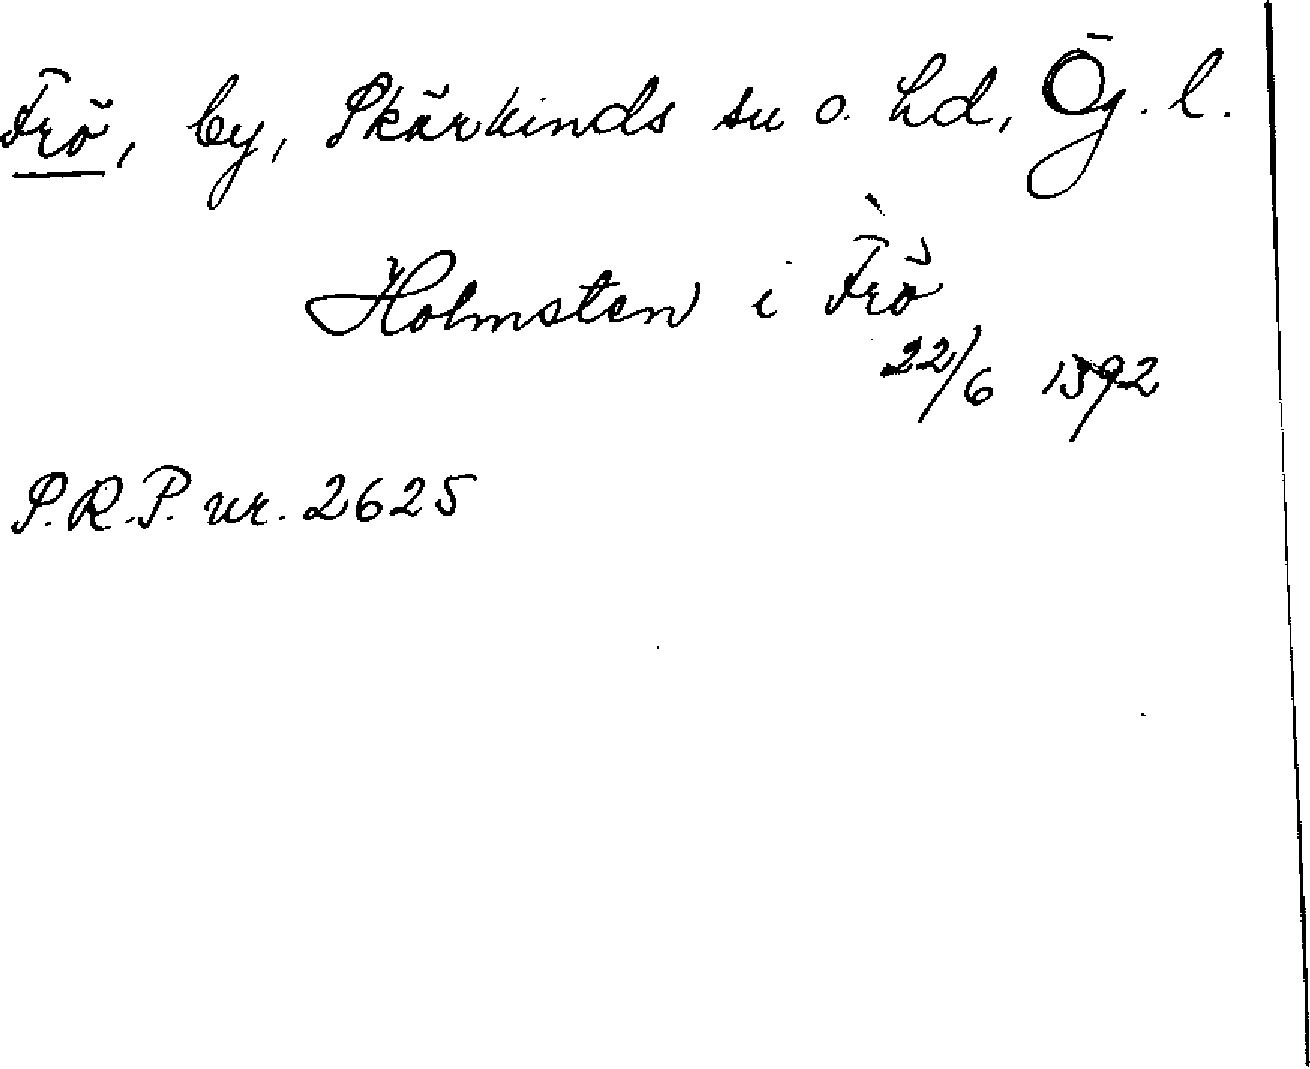 Frö, by, Skärkinds sn o. hd, Ög. l.
Holmsten i Frö
22/6 1392
P.R.P. nr. 2625